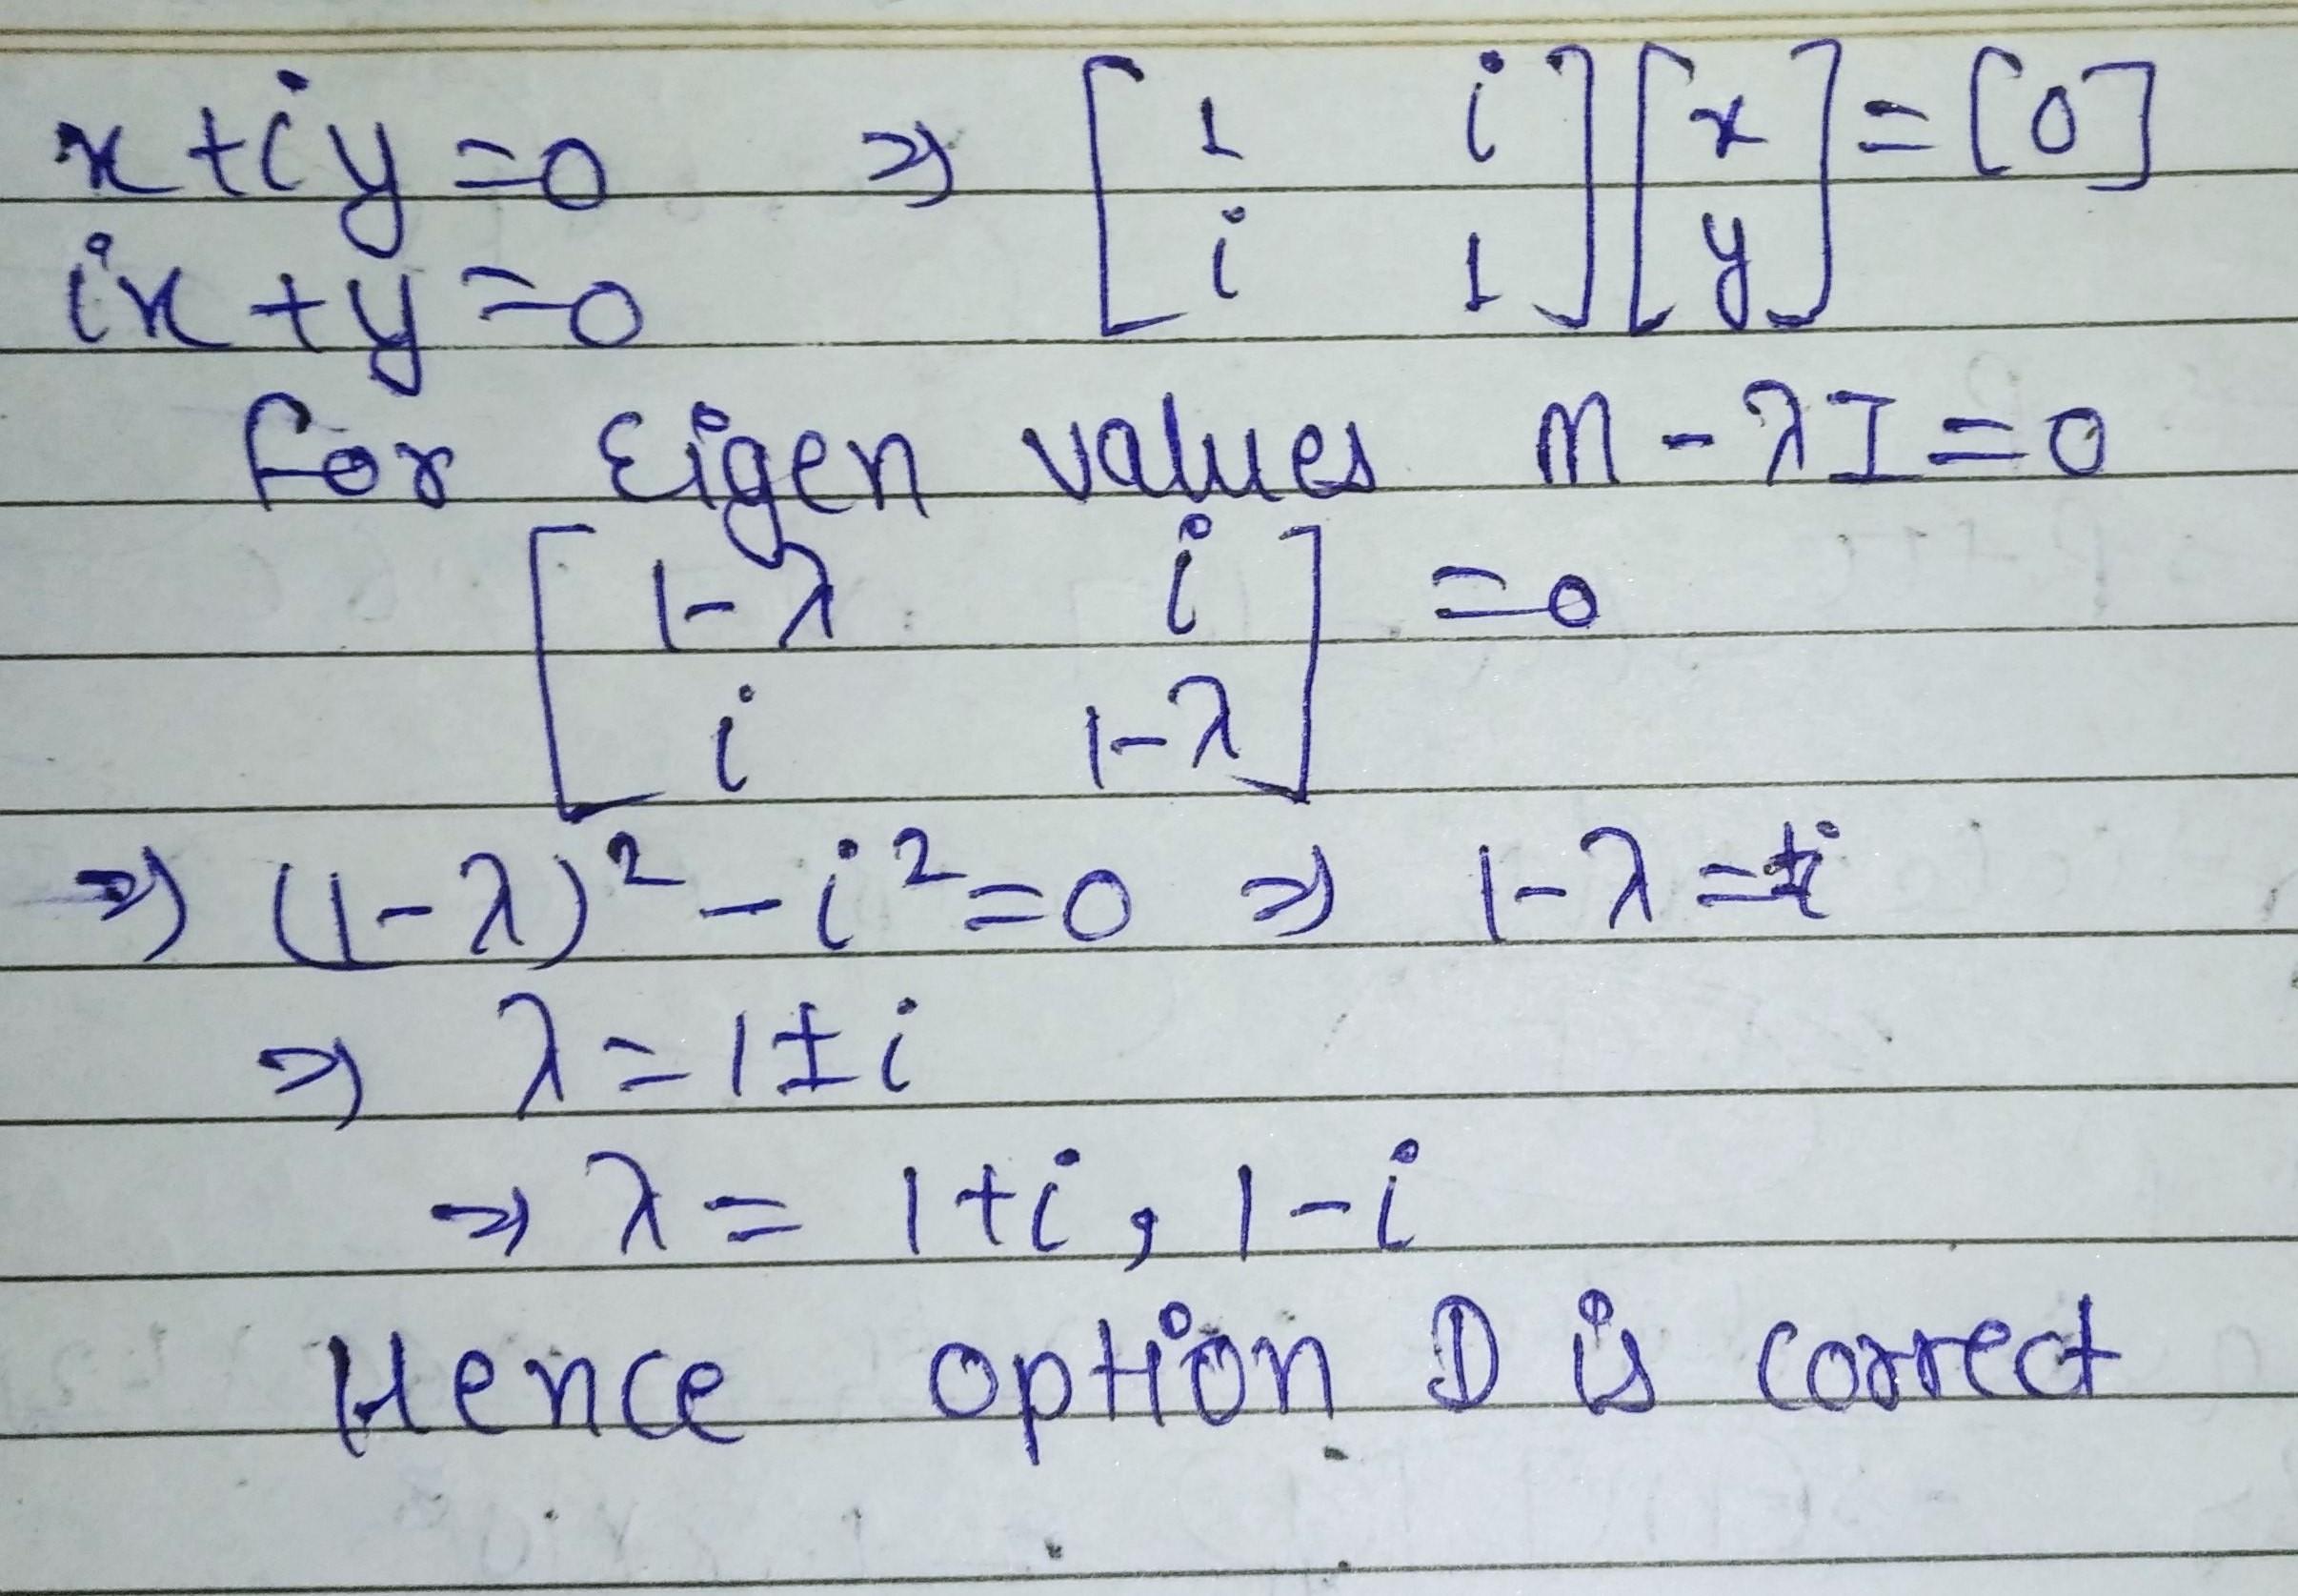 x + iy = 0 ⇒ [1 i; i 1] [x; y] = [0]
ix + y = 0
for Eigen values M - λI = 0
[1-λ i; i 1-λ] = 0
⇒ (1-λ)² - i² = 0 ⇒ 1-λ = ±i
⇒ λ = 1 ± i
⇒ λ = 1+i, 1-i
Hence option D is correct